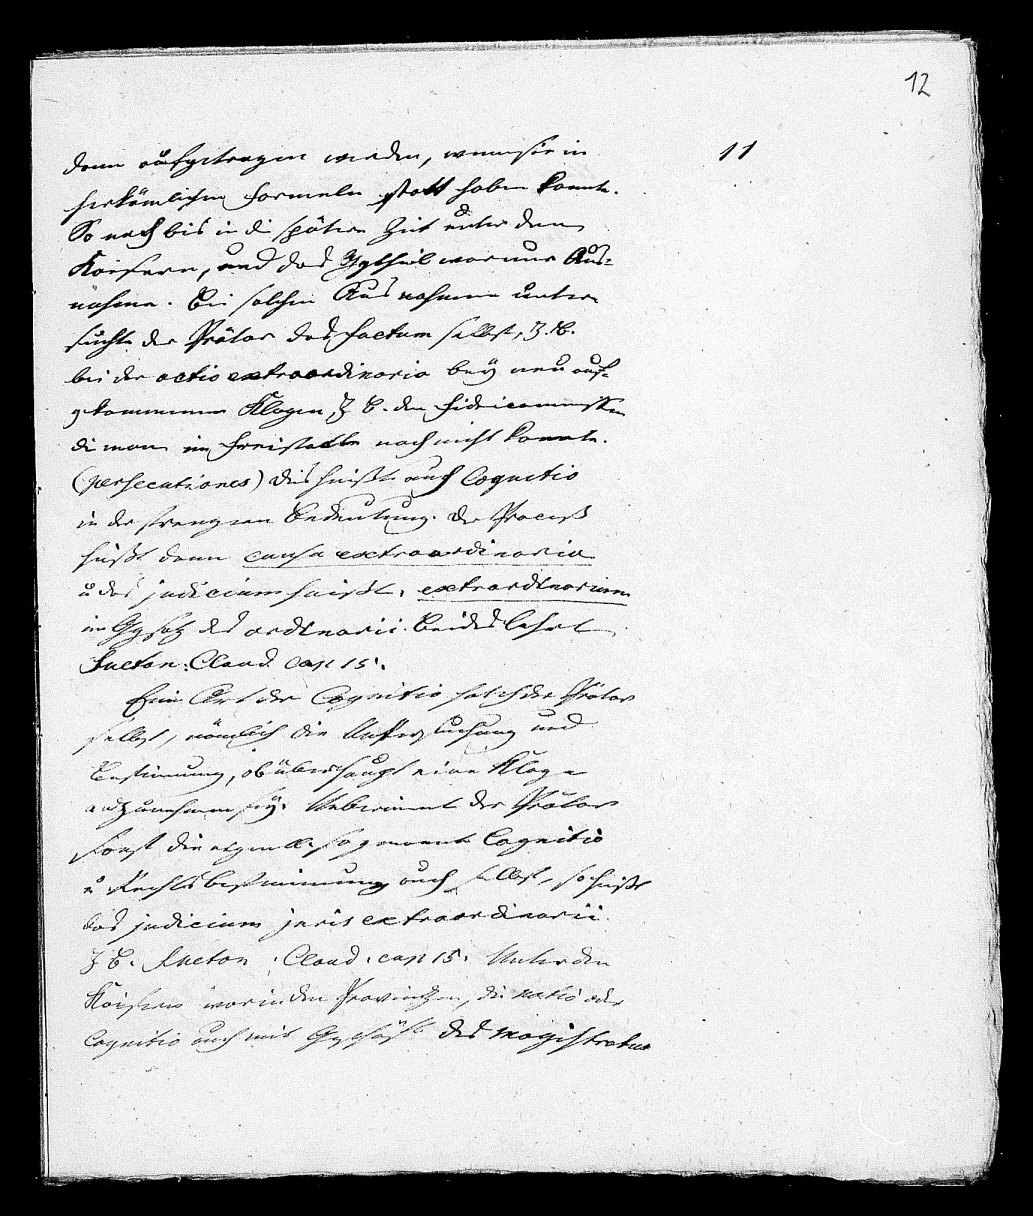 12
11
dann aufgetragen werden, wenn sie in
herkömlichen Formeln statt haben konnte.
So noch bis in die spätere Zeit unter den
Kaisern, und das Gegentheil war nur Aus-
nahme. Bei solchen Ausnahmen unter-
suchte der Prätor das Factum selbst, z. B.
bei der actio extraordinaria bey neu auf-
gekommenen Klagen, z B. den Fideicommissen
die man im Freistaate noch nicht kannte.
(persecutiones) dies heißt auch Cognitio
in der strengren Bedeutung. Der Proceß
heißt dann causa extraordinaria
u das judicium heißt, extraordinarium
im Gegsatz des ordinarii. Beides lehrt
Sueton: Claud. cap 15.
Eine Art der Cognitio hat jeder Prätor
selbst, nämlich die Untersuchung und
Bestimmung, ob überhaupt eine Klage
anzunehmen sey. Uebernimt der Prätor
sonst die eigentl. sogenannte Cognitio
u Rechtsbestimmung auch selbst, so heißt
das judicium juris extraordinarii.
z B. Sueton. Claud. cap 15. Unter den
Kaisern war in den Provinzen, die notio oder
Cognitio auch mit Geschäft des Magistratus